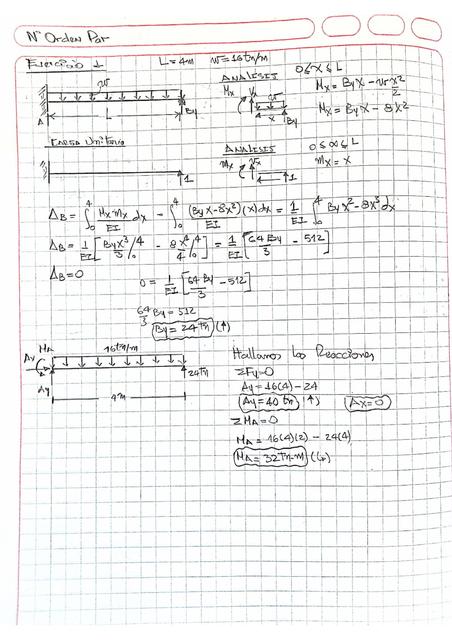 Nº Orden Par
Ejercicio 1 L=4m w=16tn/m
w
A L By
ANALISIS 0≤x≤L
Mx Vx w x By
Mx = By X - wx²/2
Mx = By X - 8x²
Carga Unitaria
1
ANALISIS 0≤x≤L
mx Vx x 1
mx = x
ΔB = ∫₀⁴ Mx mx/EI dx - ∫₀⁴ (By X - 8x²)(x)dx/EI = 1/EI ∫₀⁴ By x² - 8x³ dx
ΔB = 1/EI [By x³/3 /₀⁴ - 8x⁴/4 /₀⁴] = 1/EI [64 By/3 - 512]
ΔB = 0 0 = 1/EI [64 By/3 - 512]
64/3 By = 512
By = 24 tn (↑)
MA
Ax 16tn/m
Ay 24tn
4m
Hallamos las Reacciones
ΣFy=0
Ay = 16(4) - 24
Ay = 40 tn (↑) Ax=0
ΣMA=0
MA = 16(4)(2) - 24(4)
MA = 32 tn-m (↶)